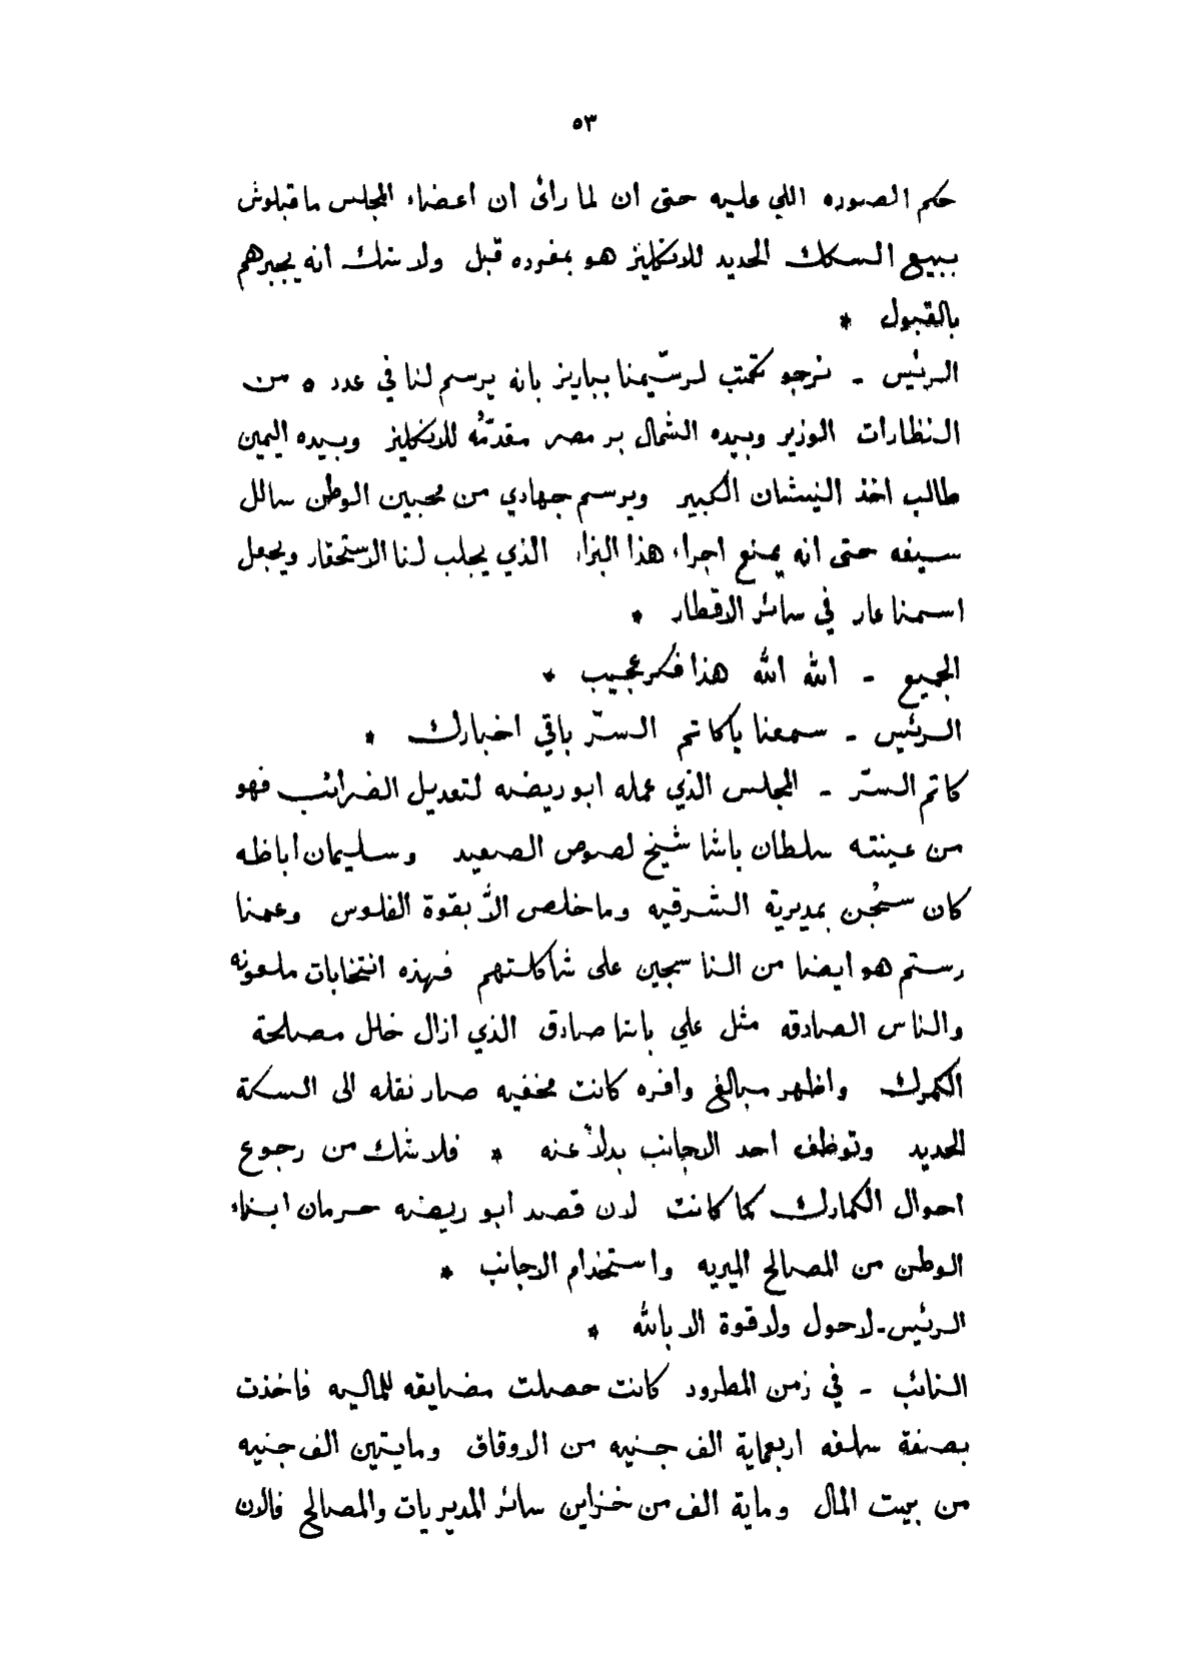 ٥٣
حكم الصوره اللي عليه حتى ان لما رائ ان اعضاء المجلس ماقبلوش
ببيع السكك الحديد للانكليز هو بمفرده قبل ولا شك انه يجبرهم
بالقبول *
الرئيس - نرجو تكتب لرسّيمنا بباريز بانه يرسم لنا في عدد ٥ من
النظارات الوزير وبيده الشمال بر مصر مقدّمُه للانكليز وبيده اليمين
طالب اخذ النيشان الكبير ويرسم جهادي من محبين الوطن سالل
سيفه حتى انه يمنع اجراء هذا البزار الذي يجلب لنا الاستحقار ويجعل
اسمنا عار في سائر الاقطار *
الجميع - الله الله هذا فكر عجيب *
الرئيس - سمعنا ياكاتم السرّ باقي اخبارك *
كاتم السرّ - المجلس الذي عمله ابو ريضه لتعديل الضرائب فهو
من عينته سلطان باشا شيخ لصوص الصعيد وسليمان اباظه
كان سُجن بمديرية الشرقيه وماخلص الاّ بقوة الفلوس وعمنا
رستم هو ايضا من الناسجين على شاكلتهم فهذه انتخابات ملعونه
والناس الصادقه مثل علي باشا صادق الذي ازال خلل مصلحة
الكمرك واظهر مبالغ وافره كانت مخفيه صار نقله الى السكة
الحديد وتوظف احد الاجانب بدلاً عنه * فلا شك من رجوع
احوال الكمارك كما كانت لان قصد ابو ريضه حرمان ابناء
الوطن من المصالح الميريه واستخدام الاجانب *
الرئيس - لاحول ولا قوة الا بالله *
النائب - في زمن المطرود كانت حصلت مضايقه للماليه فاخذت
بصفة سلفه اربعماية الف جنيه من الاوقاق ومايتين الف جنيه
من بيت المال وماية الف من خزاين سائر المديريات والمصالح فالان